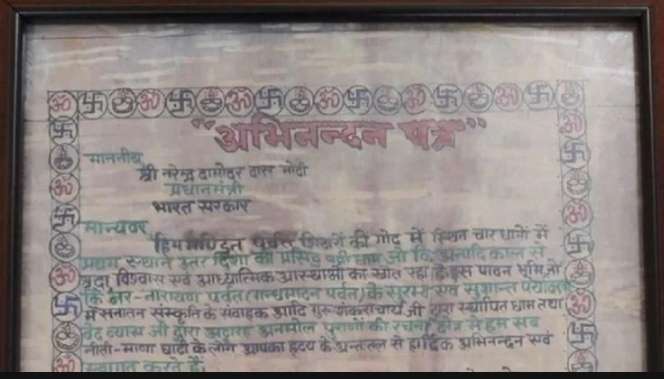 "अभिनन्दन पत्र"
माननीय
श्री नरेन्द्र दामोदर दास मोदी
प्रधानमंत्री
भारत सरकार
मान्यवर
हिममण्डित पर्वत शिखरों की गोद में स्थित चार धामों में
प्रथम स्थान उत्तर दिशा का प्रसिद्ध बद्री धाम जो कि अनादि काल से
श्रद्धा विश्वास एवं आध्यात्मिक आस्थाओं का स्रोत रहा है इस पावन भूमि जो
कि नर-नारायण पर्वत (गन्धमादन पर्वत) के सुरम्य एवं सुशान्त
में सनातन संस्कृति के संवाहक आदि गुरु शंकराचार्य जी द्वारा स्थापित धाम तथा
वेद व्यास जी द्वारा अट्ठारह अनमोल पुराणों की रचना क्षेत्र से हम सब
नीती-माणा घाटी के लोग आपका हृदय के अन्तस्तल से हार्दिक अभिनन्दन एवं
स्वागत करते हैं।